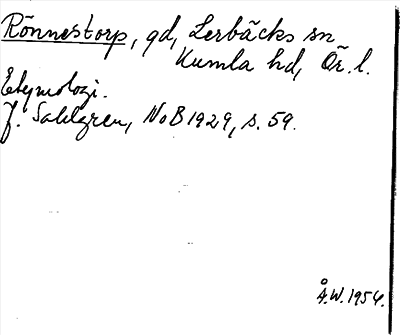 Rönnestorp, gd, Lerbäcks sn
Kumla hd, Ör. l.
Etymologi.
J. Sahlgren, NoB 1929, s. 59.
Å.W. 1954.